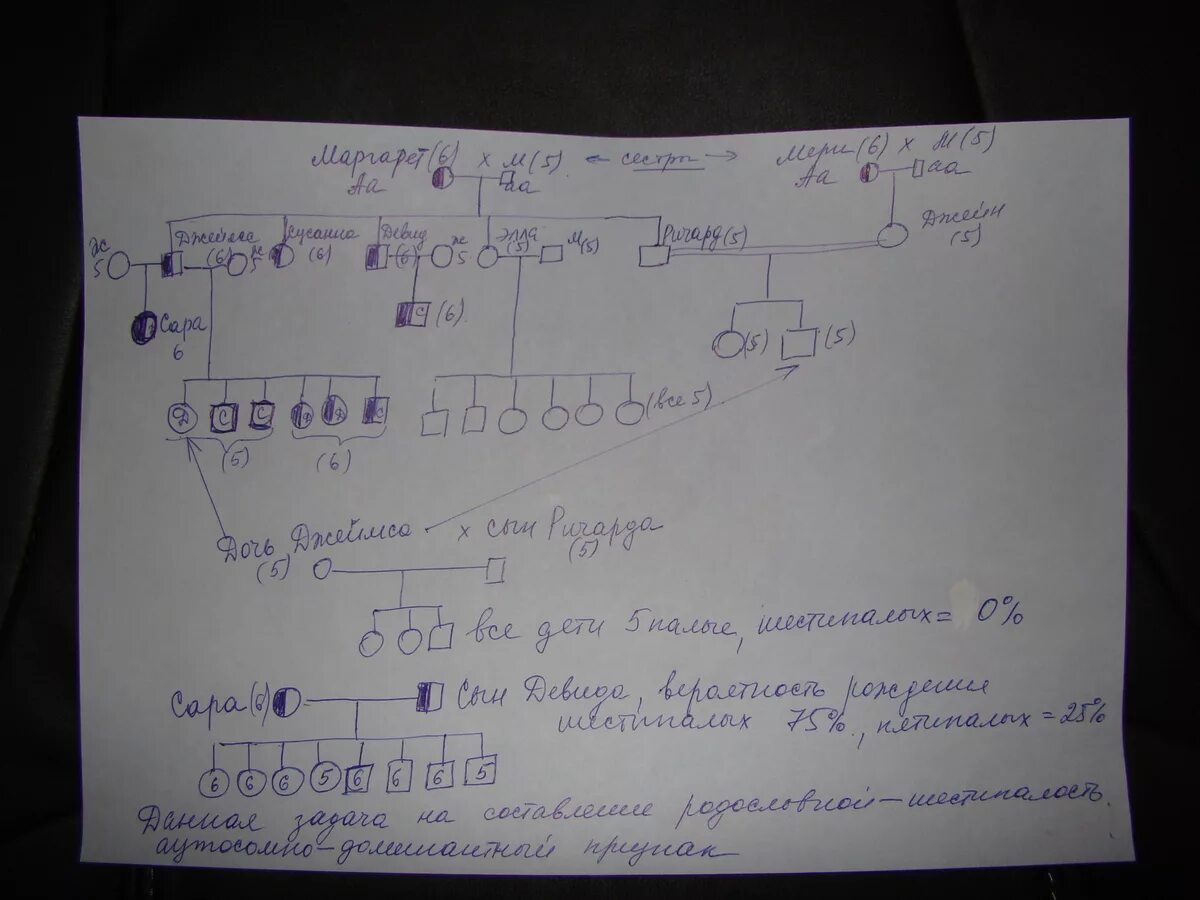 Маргарет (6) х М (5) ← сестры → Мери (6) х М (5)
Аа аа Аа аа
Ж 5 Джеймс (6) Ж 5 Сусанна (6) Девид (6) Ж 5 Элла (5) М (5) Ричард (5) Джейн (5)
Сара 6
С (6)
(5) (5)
Д С С Д Д С (все 5)
(5) (6)
Дочь Джеймса х сын Ричарда
(5) (5)
все дети 5палые, шестипалых = 0%
Сара (6) Сын Девида, вероятность рождения
шестипалых 75%, пятипалых = 25%
6 6 6 5 6 6 6 5
Данная задача на составление родословной – шестипалость
аутосомно-доминантный признак